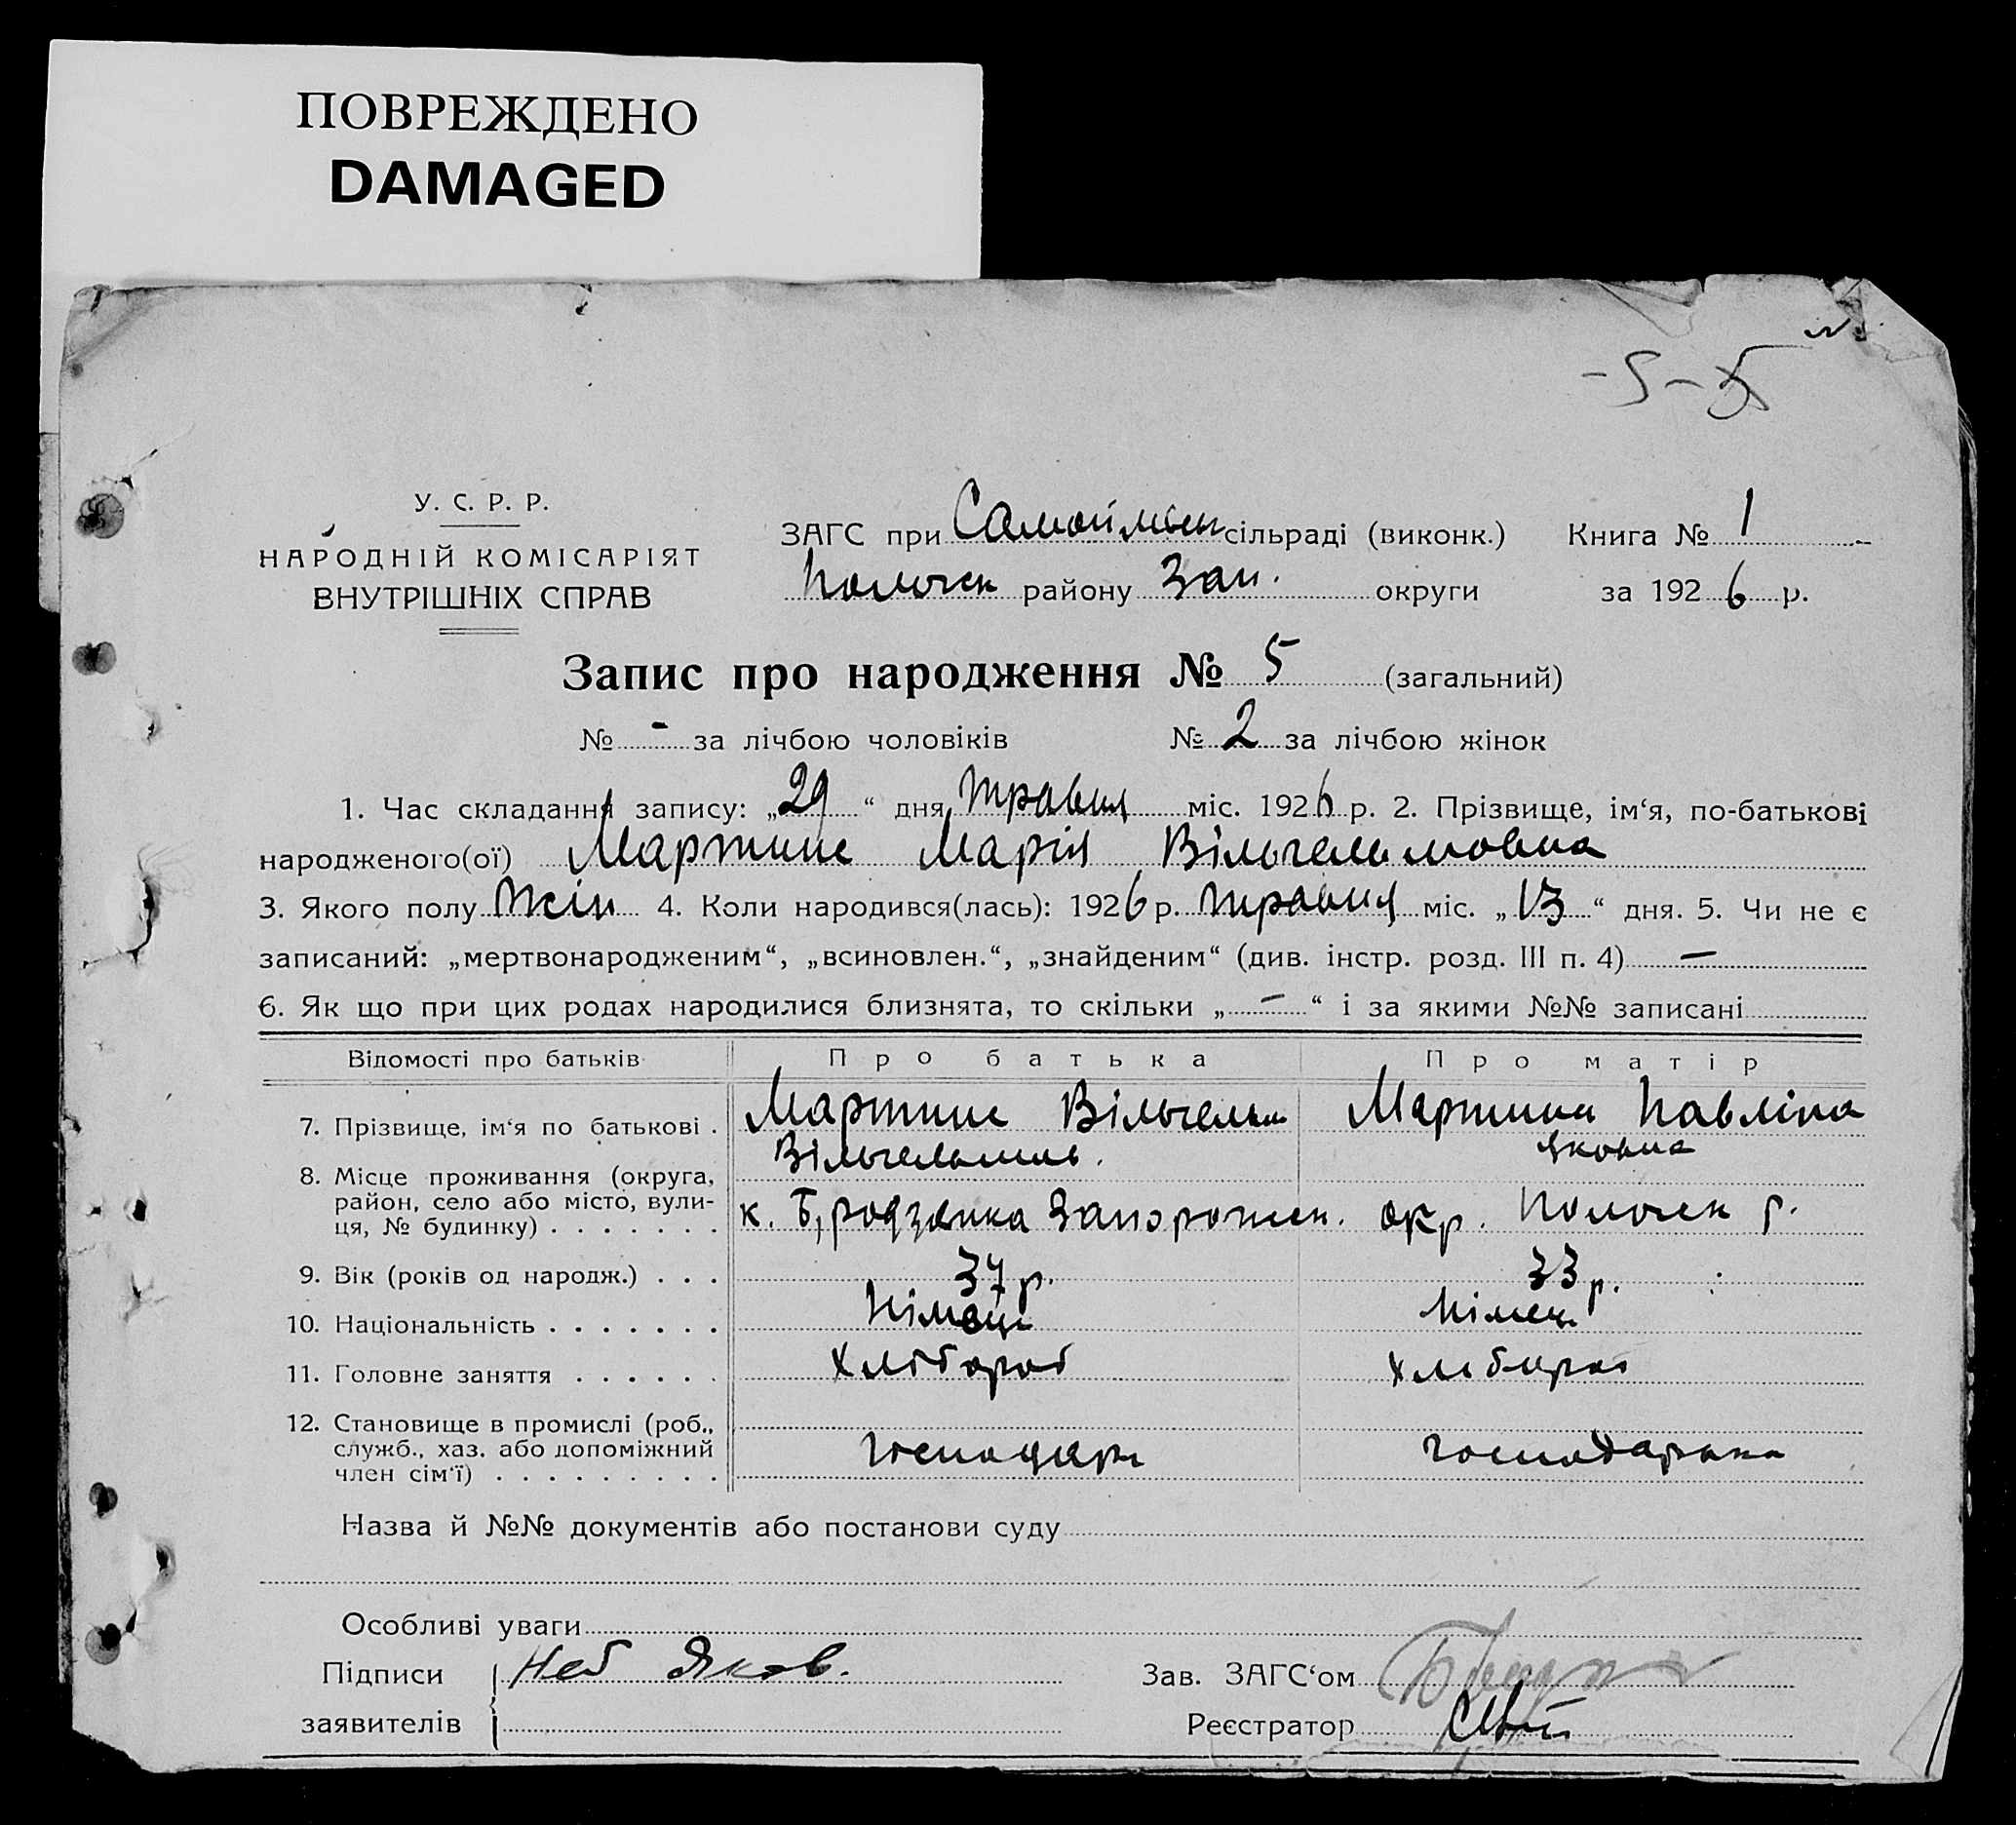 ПОВРЕЖДЕНО
DAMAGED
-5-
У. С. Р. Р.
НАРОДНІЙ КОМІСАРІЯТ
ВНУТРІШНІХ СПРАВ
ЗАГС при сільраді (виконк.) Книга № 1
Пологськ району Зап. округи за 1926 р.
Запис про народження № 5 (загальний)
№ - за лічбою чоловіків № 2 за лічбою жінок
1. Час складання запису: „29“ дня травня міс. 1926 р. 2. Прізвище, ім‘я, по-батькові
народженого(ої) Мартинс Марія Вільгельмовна
3. Якого полу Жін 4. Коли народився(лась): 1926 р. травня міс. „13“ дня. 5. Чи не є
записаний: „мертвонародженим“, „всиновлен.“, „знайденим“ (див. інстр. розд. III п. 4) —
6. Як що при цих родах народилися близнята, то скільки „—“ і за якими №№ записані
Відомості про батьків Про батька Про матір
7. Прізвище, ім‘я по батькові . Мартинс Вільгельм Вільгельмов. Мартинс Павліна Яковна
8. Місце проживання (округа, район, село або місто, вули-ця, № будинку) . . . . . . . к. Родзянка Запорожськ. окр. Пологськ р.
9. Вік (років од народж.) . . . 37 р. 33 р.
10. Національність . . . . . . . Німець Німець
11. Головне заняття . . . . . . Хлібороб хлібороб
12. Становище в промислі (роб., служб., хаз. або допоміжний член сім‘ї) . . . . . . . . . господарь господарька
Назва й №№ документів або постанови суду
Особливі уваги
Підписи заявителів Яков.
Зав. ЗАГС‘ом
Реєстратор